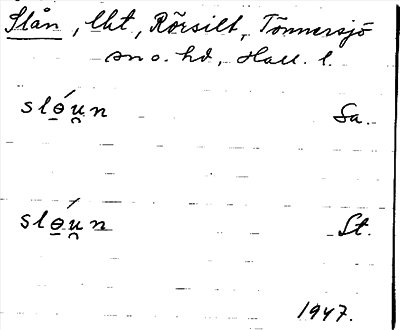 Slån, lht, Rörsilt, Tönnersjö
sn o. hd, Hall. l.
slɵ̱́u̯n Sa.
slɵ̱́u̯n St.
1947.